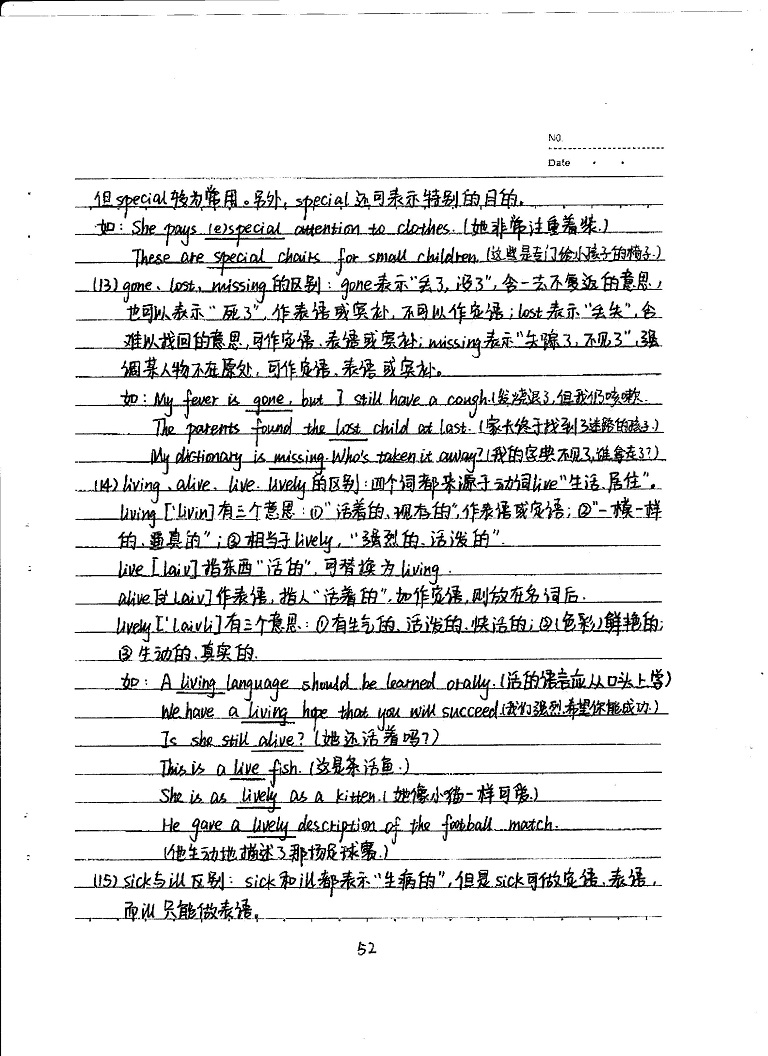 NO.
Date
但special较为常用。另外，special还可表示特别的目的。
如：She pays (e)special attention to clothes.（她非常注重着装.）
These are special chairs for small children.（这些是专门给小孩子的椅子.）
(13) gone、lost、missing的区别：gone表示“丢了，没了”，含一去不复返的意思，
也可以表示“死了”，作表语或宾补，不可以作定语；lost表示“丢失”，含
难以找回的意思，可作定语、表语或宾补；missing表示“失踪了，不见了”，强
调某人物不在原处，可作定语、表语或宾补。
如：My fever is gone, but I still have a cough.（发烧退了，但我仍咳嗽.
The parents found the lost child at last.（家长终于找到了迷路的孩子.）
My dictionary is missing. Who's taken it away?（我的字典不见了，谁拿走了？）
(14) living、alive、live、lively的区别：四个词都来源于动词live“生活、居住”。
living ['livin]有三个意思：①“活着的、现存的”，作表语或定语；②“一模一样
的、逼真的”；③相当于lively，“强烈的、活泼的”.
live [laiv]指东西“活的”，可替换为living.
alive[əlaiv]作表语，指人“活着的”，如作定语，则放在名词后.
lively ['laivli]有三个意思：①有生气的、活泼的、快活的；②(色彩)鲜艳的；
③生动的、真实的.
如：A living language should be learned orally.（活的语言应从口头上学）
We have a living hope that you will succeed.（我们强烈希望你能成功.）
Is she still alive?（她还活着吗？）
This is a live fish.（这是条活鱼.）
She is as lively as a kitten.（她像小猫一样可爱.）
He gave a lively description of the football match.
（他生动地描述了那场足球赛.）
(15) sick与ill区别：sick和ill都表示“生病的”，但是sick可做定语、表语，
而ill只能做表语。
52